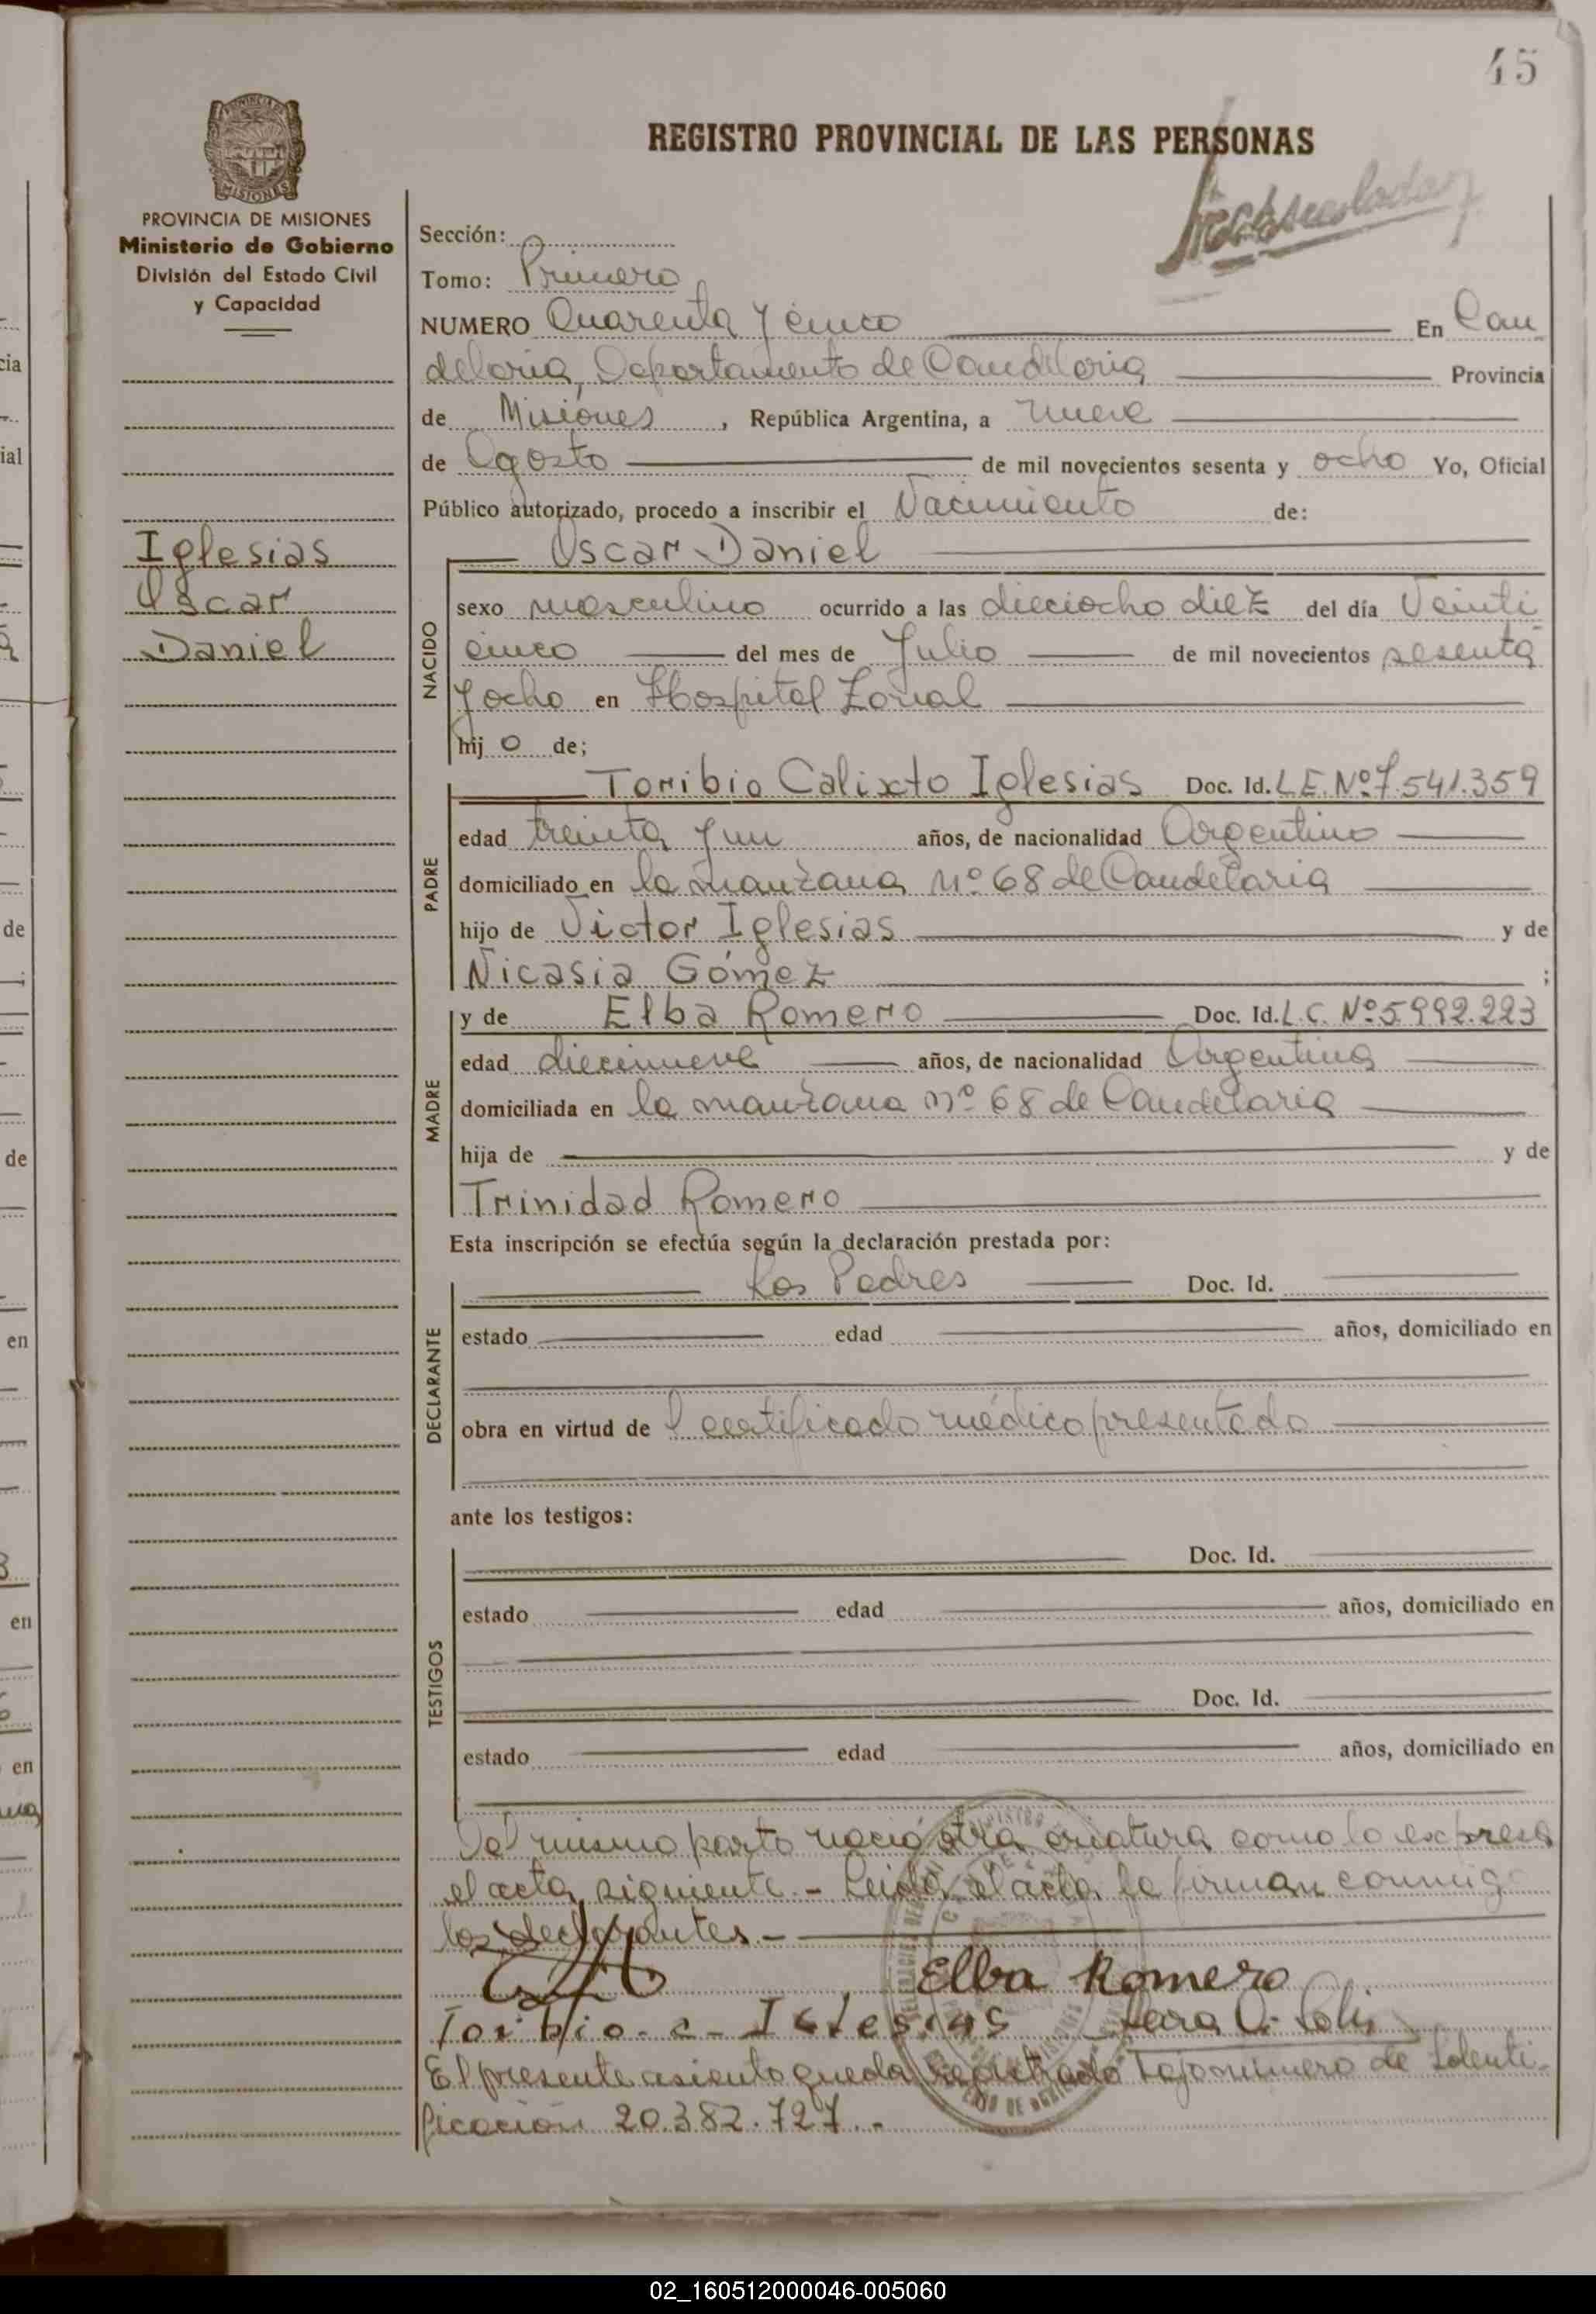 45
REGISTRO PROVINCIAL DE LAS PERSONAS
PROVINCIA DE MISIONES
Ministerio de Gobierno
División del Estado Civil
y Capacidad
Iglesias
Oscar
Daniel
Sección:
Tomo: Primero
NUMERO Cuarenta y cinco En Can
delaria, Departamento de Candelaria Provincia
de Misiones, República Argentina, a nueve
de Agosto de mil novecientos sesenta y ocho Yo, Oficial
Público autorizado, procedo a inscribir el Nacimiento de:
Oscar Daniel
NACIDO
sexo masculino ocurrido a las dieciocho diez del día Veinti
cinco del mes de Julio de mil novecientos sesenta
y ocho en Hospital Zonal
hij o de;
PADRE
Toribio Calixto Iglesias Doc. Id. L.E. Nº 7.541.359
edad treinta y un años, de nacionalidad Argentino
domiciliado en la manzana nº 68 de Candelaria
hijo de Victor Iglesias y de
Nicasia Gómez ;
MADRE
y de Elba Romero Doc. Id. L.C. Nº 5.992.223
edad diecinueve años, de nacionalidad Argentina
domiciliada en la manzana nº 68 de Candelaria
hija de y de
Trinidad Romero
Esta inscripción se efectúa según la declaración prestada por:
DECLARANTE
Los Padres Doc. Id.
estado edad años, domiciliado en
obra en virtud de l certificado médico presentado
ante los testigos:
TESTIGOS
Doc. Id.
estado edad años, domiciliado en
Doc. Id.
estado edad años, domiciliado en
Del mismo parto nació otra criatura como lo expresa
el acta siguiente.- Leída el acta la firman conmigo
los declarantes.-
Elba Romero
Toribio. c- Iglesias
El presente asiento queda registrado bajo número de Identi-
ficación 20.382.727.-
02_160512000046-005060